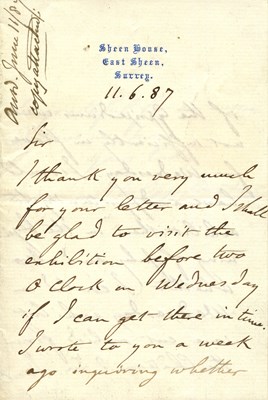 Ansd June 11/87
copy attached:
Sheen House,
East Sheen,
Surrey.
11.6.87
Sir
I thank you very much
for your letter and I shall
be glad to visit the
exhibition before two
O Clock on Wednesday
if I can get there in time,
I wrote to you a week
ago inquiring whether